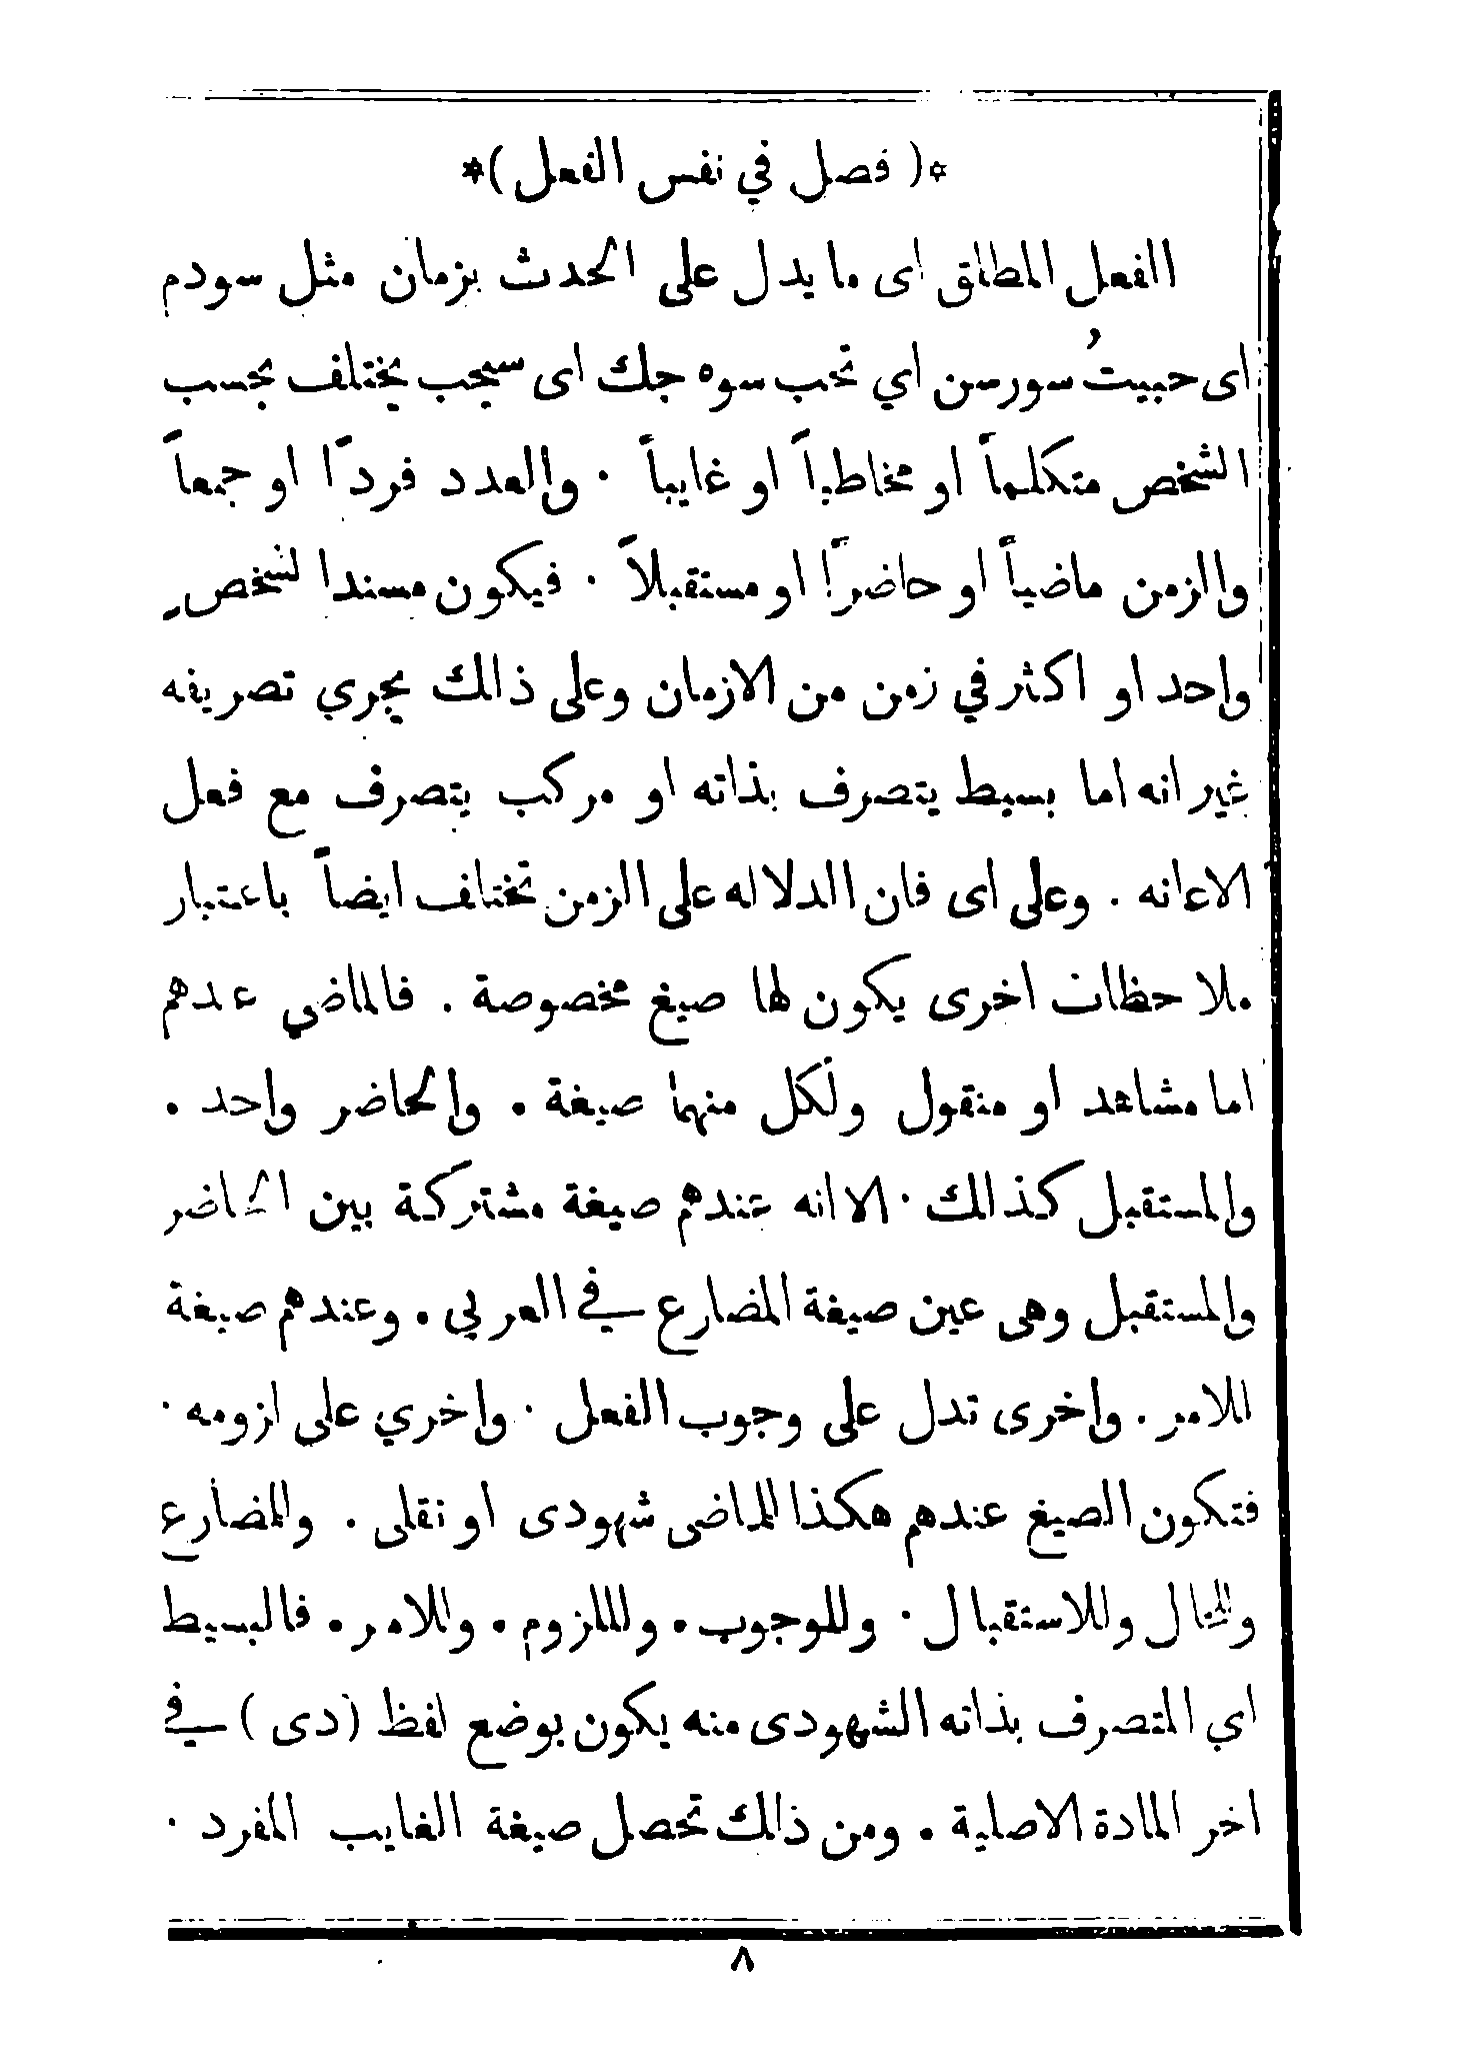 *( فصل في نفس الفعل )*
الفعل المطلق اى ما يدل على الحدث بزمان مثل سودم
اى حببيتُ سورسن اي تحب سوه جك اى سيحب يختلف بحسب
الشخص متكلماً او مخاطباً او غايباً ٠ والعدد فرداً او جمعاً
والزمن ماضياً او حاضراً او مستقبلاً ٠ فيكون مسندا لشخصٍ
واحد او اكثر في زمن من الازمان وعلى ذالك يجري تصريفه
غير انه اما بسيط يتصرف بذاته او مركب يتصرف مع فعل
الاعانه . وعلى اى فان الدلاله على الزمن تختلف ايضاً باعتبار
ملاحظات اخرى يكون لها صيغ مخصوصة . فالماضي عندهم
اما مشاهد او منقول ولكل منهما صيغة . والحاضر واحد .
والمستقبل كذالك ٠ الا انه عندهم صيغة مشتركة بين الحاضر
والمستقبل وهى عين صيغة المضارع في العربي . وعندهم صيغة
للامر . واخرى تدل على وجوب الفعل ٠ واخري على لزومه ٠
فتكون الصيغ عندهم هكذا الماضى شهودى او نقلى . والمضارع
وللحال وللاستقبال ٠ وللوجوب . وللزوم . وللامر . فالبسيط
اي المتصرف بذاته الشهودى منه يكون بوضع لفظ (دى) في
اخر المادة الاصلية . ومن ذالك تحصل صيغة الغايب المفرد ٠
٨